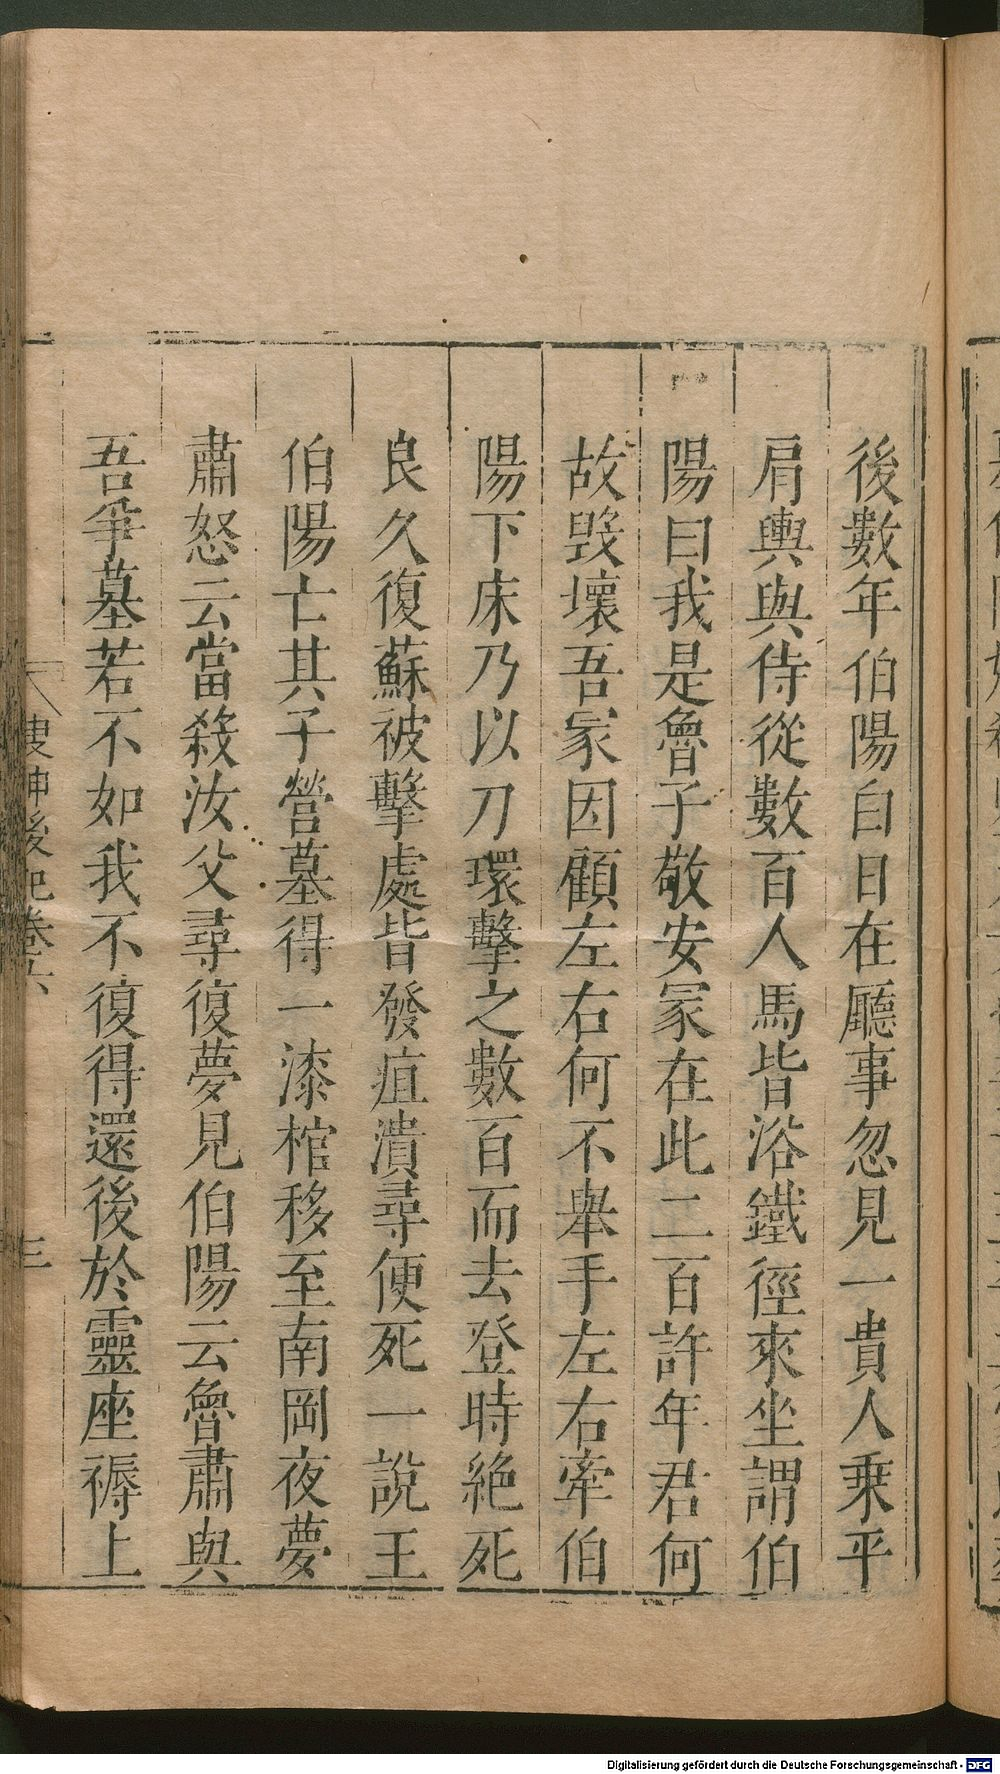 後數年伯陽白日在廳事忽見一貴人乗平
肩輿與侍從數百人馬皆浴鐵徑來坐謂伯
陽曰我是魯子敬安冢在此二百許年君何
故毀壞吾冢因顧左右何不舉手左右牽伯
陽下床乃以刀環擊之數百而去登時絶死
良久復蘇被擊處皆發疽潰尋便死一說王
伯陽亡其子營墓得一漆棺移至南岡夜夢
肅怒云當殺汝父尋復夢見伯陽云魯肅與
吾爭墓若不如我不復得還後於靈座褥上
搜神後記卷六
三
Digitalisierung gefördert durch die Deutsche Forschungsgemeinschaft - DFG